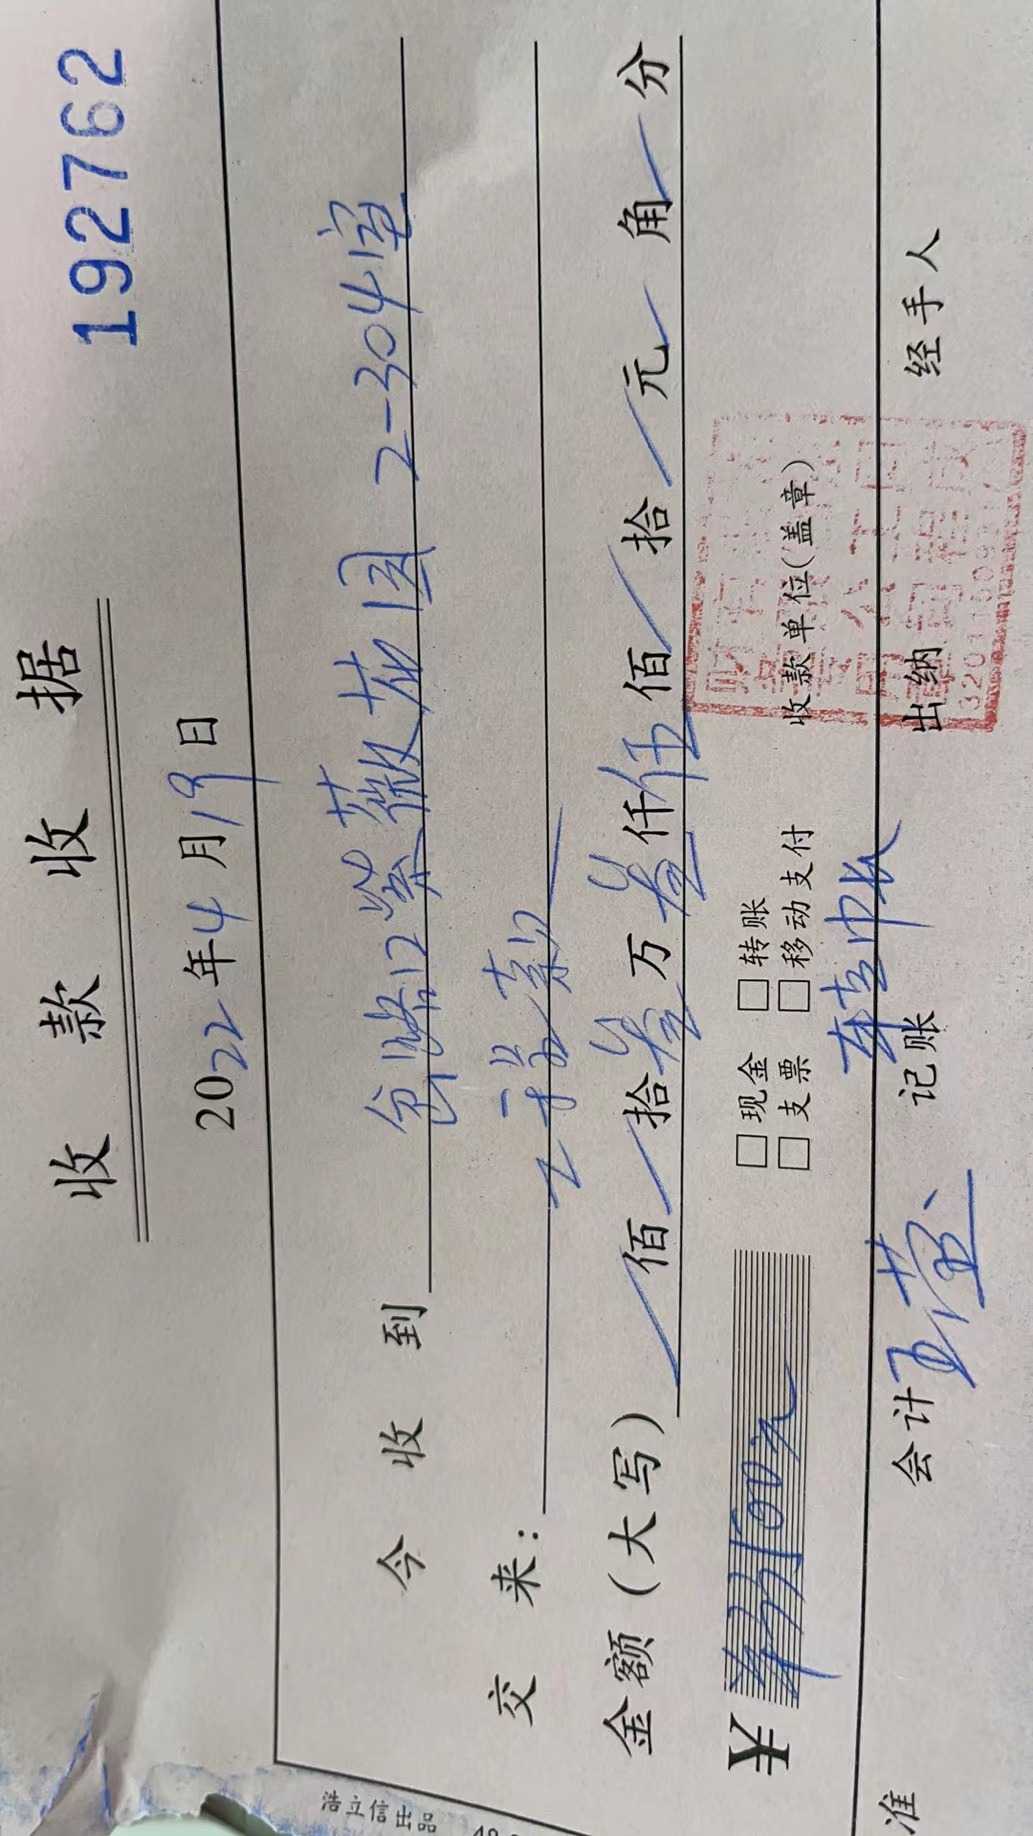 收款收据 192762
2022年4月19日
今收到 紫薇花园2-304室
交来: 工程款
金额(大写) 佰 拾叁万叁仟伍佰 拾 元 角 分
¥ 33500元 □现金 □转账 收款单位(盖章)
□支票 □移动支付
准 会计 王莹 记账 出纳 经手人
浩立信出品